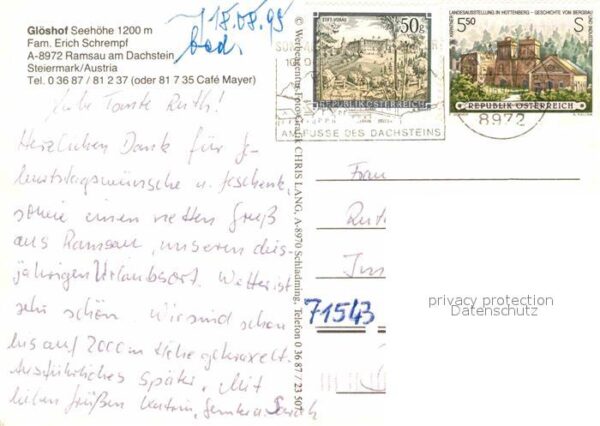 Glöshof Seehöhe 1200 m
Fam. Erich Schrempf
A-8972 Ramsau am Dachstein
Steiermark/Austria
Tel. 0 36 87 / 81 2 37 (oder 81 7 35 Café Mayer)
18.08.95
Liebe Tante Ruth!
Herzlichen Dank für Ge-
burtstagswünsche u. Geschenk,
sowie einen netten Gruß
aus Ramsau, unserem dies-
jährigen Urlaubsort. Wetter ist
sehr schön. Wir sind schon
bis auf 2000 m Höhe gekraxelt.
Ausführliches später. Mit
lieben Grüßen Katrin, Sarah
© Werbeagentur-Foto-Grafik CHRIS LANG, A-8970 Schladming, Telefon 0 36 87 / 23 507
STIFT VORAU
50g
REPUBLIK ÖSTERREICH
KÄRNTNER LANDESAUSSTELLUNG IN HÜTTENBERG - GESCHICHTE VON BERGBAU UND INDUSTRIE
5,50 S
REPUBLIK ÖSTERREICH
AM FUSSE DES DACHSTEINS
8972
Frau
Ruth
71543
privacy protection
Datenschutz